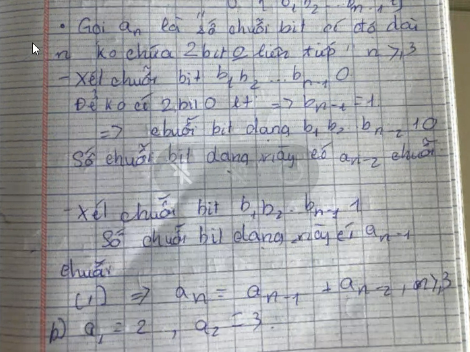 • Gọi aₙ là "số chuỗi bit có độ dài
n ko chứa 2 bit 0 liên tiếp" n ≥ 3
- Xét chuỗi bit b₁b₂ ... bₙ₋₁ 0
Để ko có 2 bit 0 lt => bₙ₋₁ = 1
=> chuỗi bit dạng b₁ b₂ .. bₙ₋₂ 10
Số chuỗi bit dạng này có aₙ₋₂ chuỗi
- Xét chuỗi bit b₁b₂ .. bₙ₋₁ 1
Số chuỗi bit dạng này có aₙ₋₁
chuỗi
(1) => aₙ = aₙ₋₁ + aₙ₋₂, n ≥ 3
b) a₁ = 2, a₂ = 3.